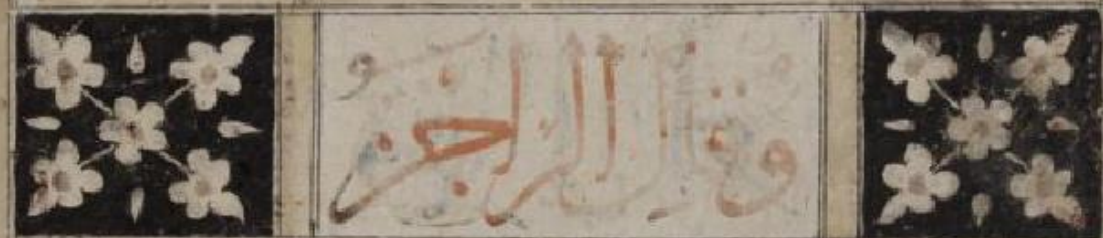 وقال الراجز